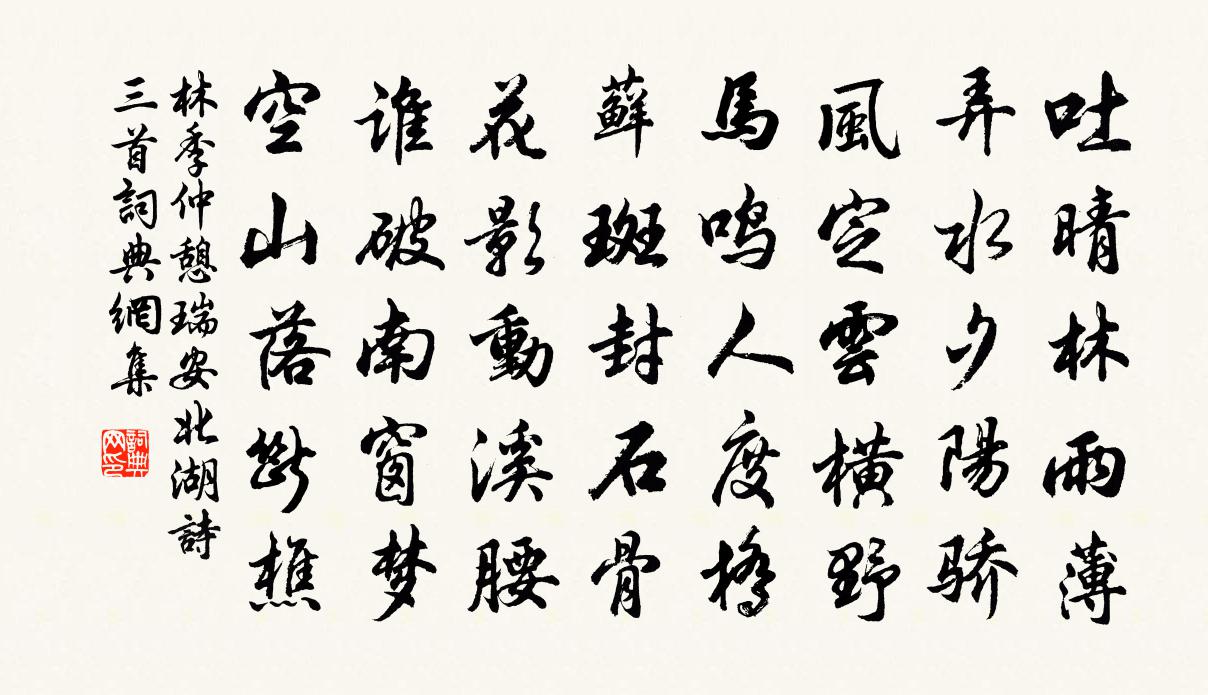 吐晴林雨薄
弄水夕陽骄
風定雲橫野
馬鸣人度橋
蘚斑封石骨
花影動溪腰
谁破南窗梦
空山落断樵
林季仲憩瑞安北湖詩
三首詞典網集
詞典网印